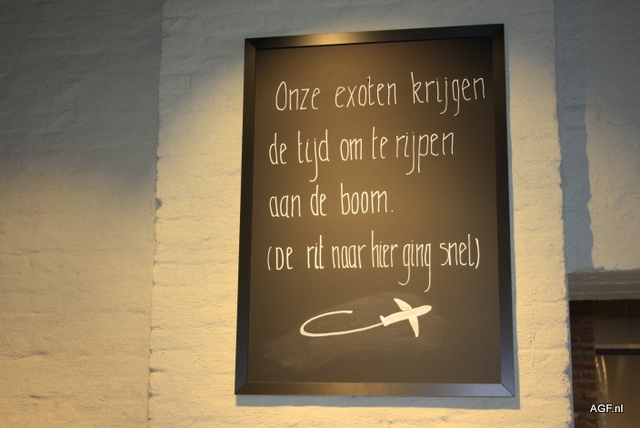 Onze exoten krijgen
de tijd om te rijpen
aan de boom.
(De rit naar hier ging snel)
AGF.nl